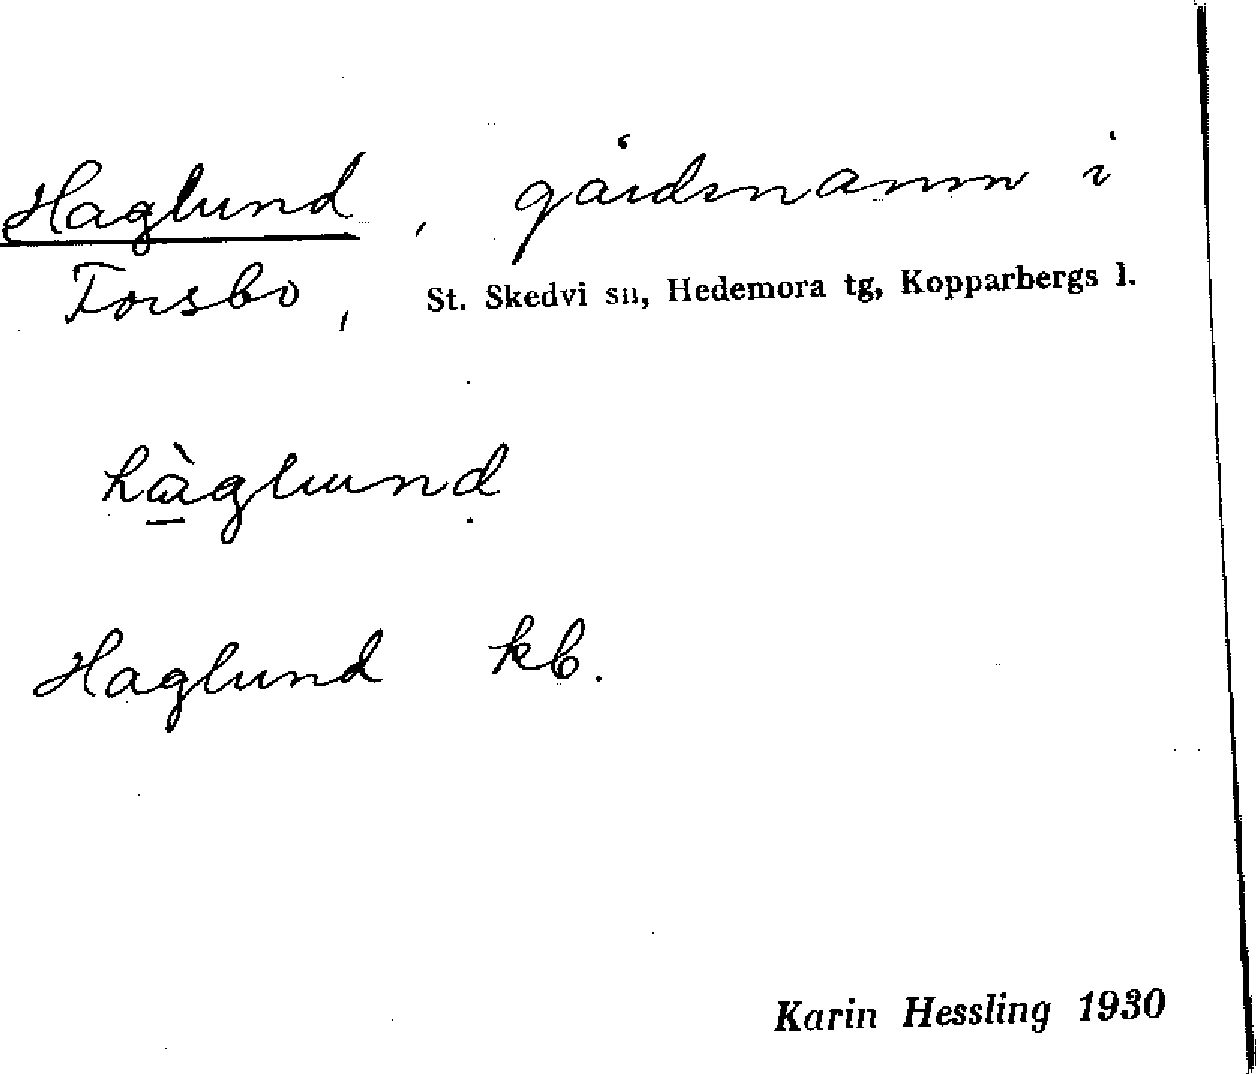 Haglund, gårdsnamn i
Forsbo, St. Skedvi sn, Hedemora tg, Kopparbergs l.
hàglund
Haglund kb.
Karin Hessling 1930